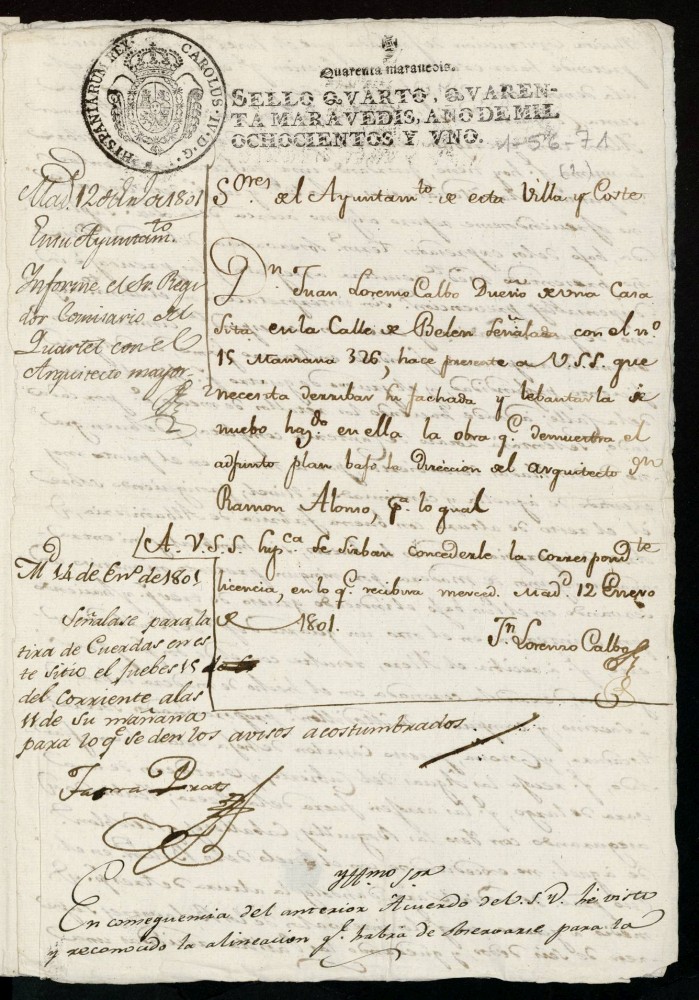 HISPANIARUM REX. CAROLUS·IV·D·G·
Quarenta maravedis.
SELLO QVARTO, QVAREN-
TA MARAVEDIS, AÑO DE MIL
OCHOCIENTOS Y VNO.
1-56-71
Mad.d 12 de En.o de 1801
En su Ayuntam.to
Informe el Sr. Regi
dor Comisario del
Quartel con el
Arquitecto mayor
S.ores del Ayuntam.to de esta Villa y Corte
D.n Juan Lorenzo Calbo Dueño de una Casa
Sita en la Calle de Belen Señalada con el n.o
15 Manzana 326, hace presente a V.S.S. que
necesita derribar su fachada y lebantarla de
nuebo haz.do en ella la obra q.e demuestra el
adjunto plan bajo la Direccion del arquitecto D.n
Ramon Alonso, p.a lo qual
A. V.S.S. sup.ca se sirban concederle la correspond.te
licencia, en lo q.e recibira merced. Mad.d 12 Enero
de 1801.
J.n Lorenzo Calbo
M.d 14 de En.o de 1801
Señalase para la
tira de Cuerdas en es
te sitio el Juebes 15
del corriente a las
11 de su mañana
para lo q.e se den los avisos acostumbrados.
Prats
Yll.mo S.or
En consequencia del anterior Acuerdo de V.S.Y. he visto
y reconocido la alineacion q.e habra de observarse para la